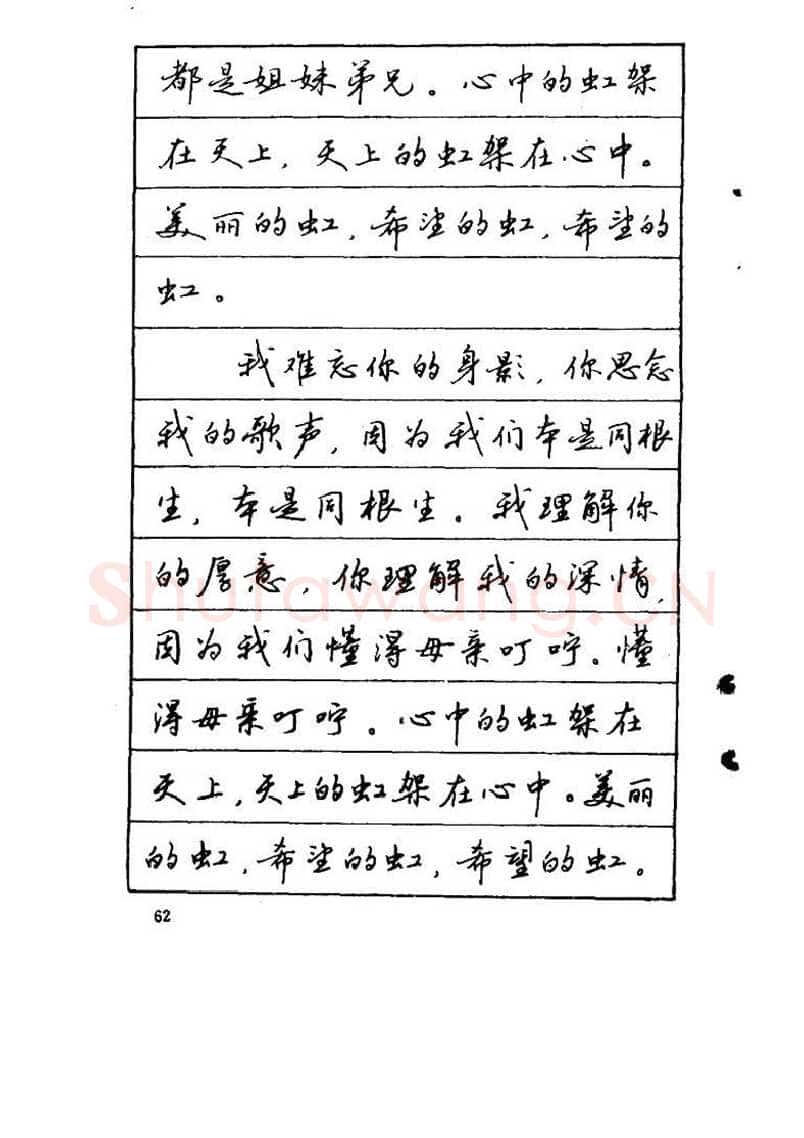 都是姐妹弟兄。心中的虹架
在天上，天上的虹架在心中。
美丽的虹，希望的虹，希望的
虹。
我难忘你的身影，你思念
我的歌声，因为我们本是同根
生，本是同根生。我理解你
的厚意，你理解我的深情，
因为我们懂得母亲叮咛。懂
得母亲叮咛。心中的虹架在
天上，天上的虹架在心中。美丽
的虹，希望的虹，希望的虹。
62
Shufawang.CN